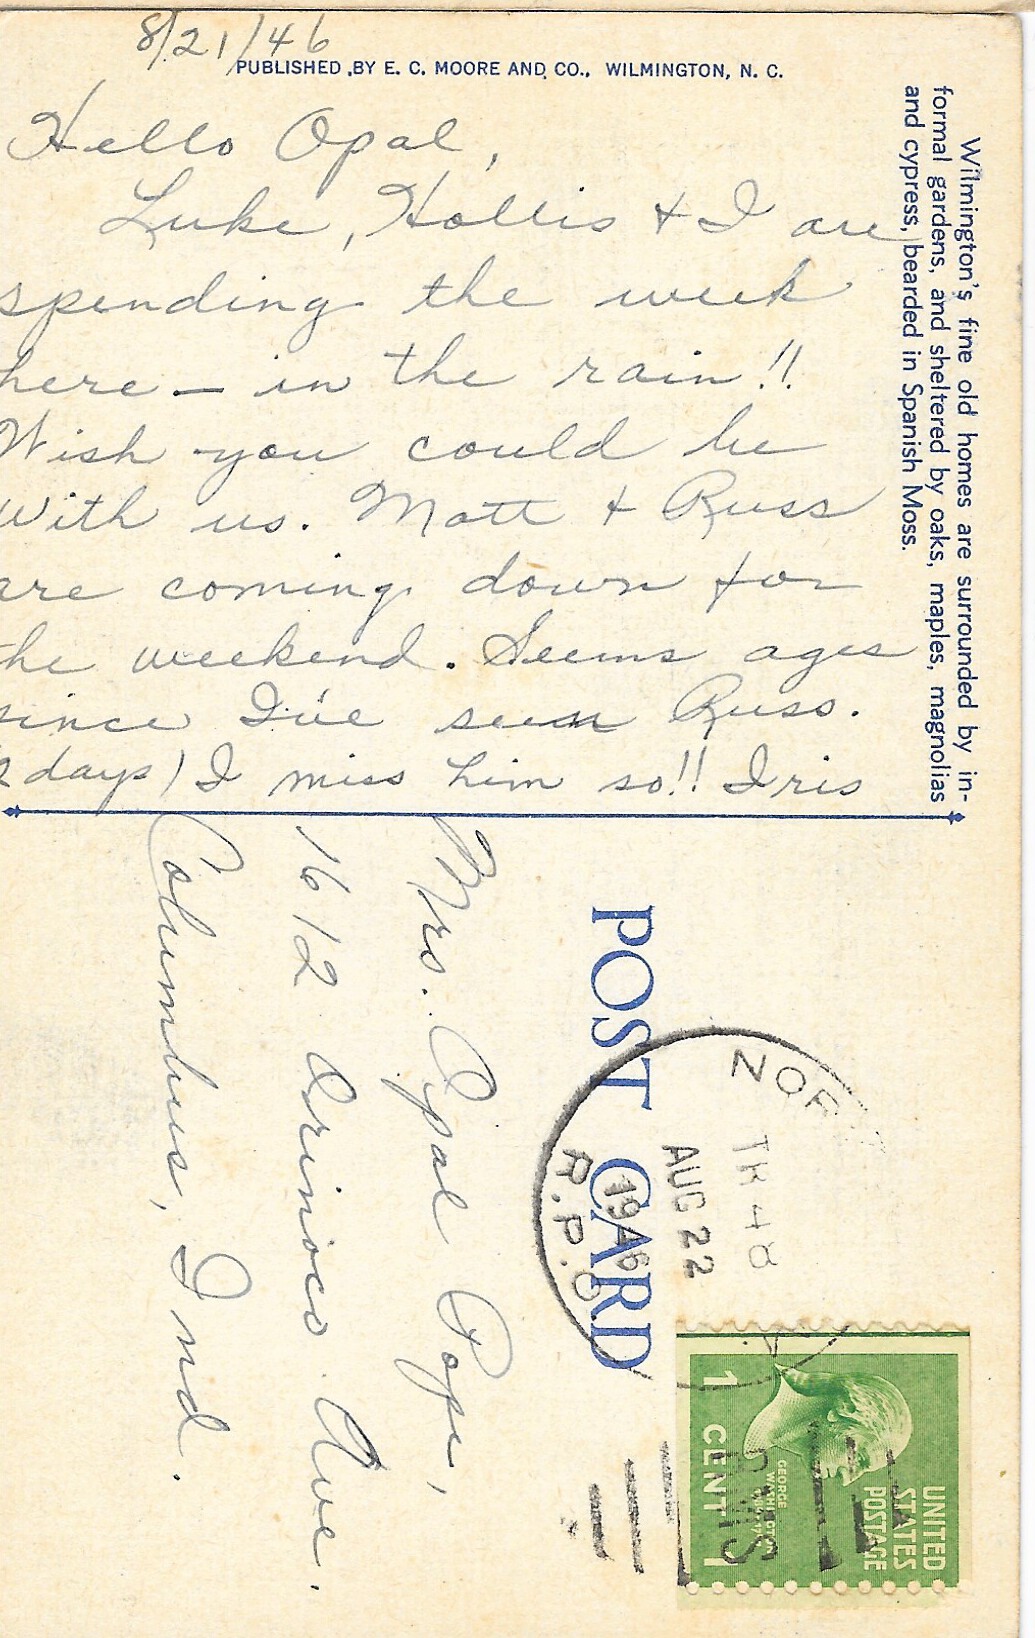 8/21/46
PUBLISHED BY E. C. MOORE AND CO., WILMINGTON, N. C.
Hello Opal,
Luke, Hollis + I are
spending the week
here — in the rain!!
Wish you could be
with us. Matt + Russ
are coming down for
the weekend. Seems ages
since I've seen Russ.
2 days) I miss him so!! Iris
Wilmington's fine old homes are surrounded by in-
formal gardens, and sheltered by oaks, maples, magnolias
and cypress, bearded in Spanish Moss.
POST CARD
NOR
TR 48
AUG 22
1946
R.P.O.
UNITED
STATES
POSTAGE
GEORGE
WASHINGTON
1 CENT 1
RMS
Mrs. Opal Pope,
1612 Orinoco Ave.
Columbus, Ind.